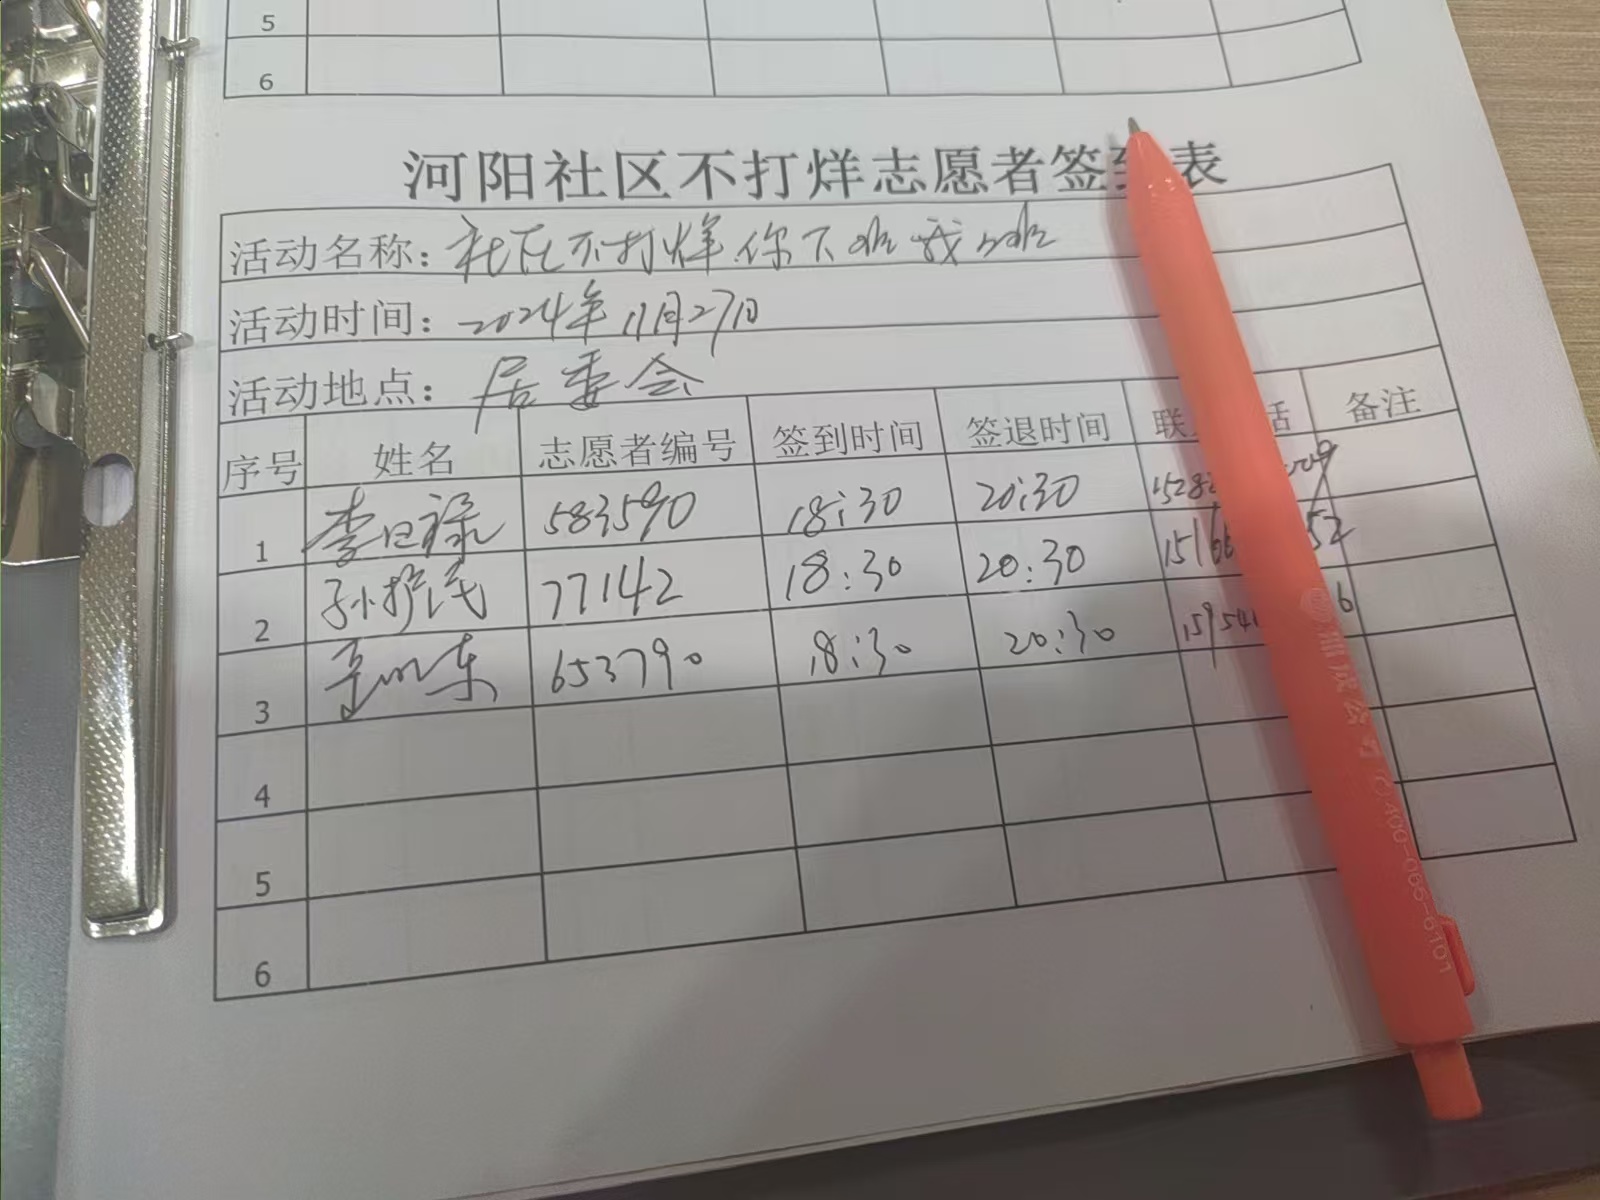 5
6
河阳社区不打烊志愿者签到表
活动名称: 社区不打烊 你下班我上班
活动时间: 2024年11月27日
活动地点: 居委会
序号 姓名 志愿者编号 签到时间 签退时间 联 话 备注
1 李日禄 583590 18:30 20:30 1528
2 孙护民 77142 18:30 20:30 15166 52
3 东 653790 18:30 20:30 15954 6
4
5
6
400-065-6101